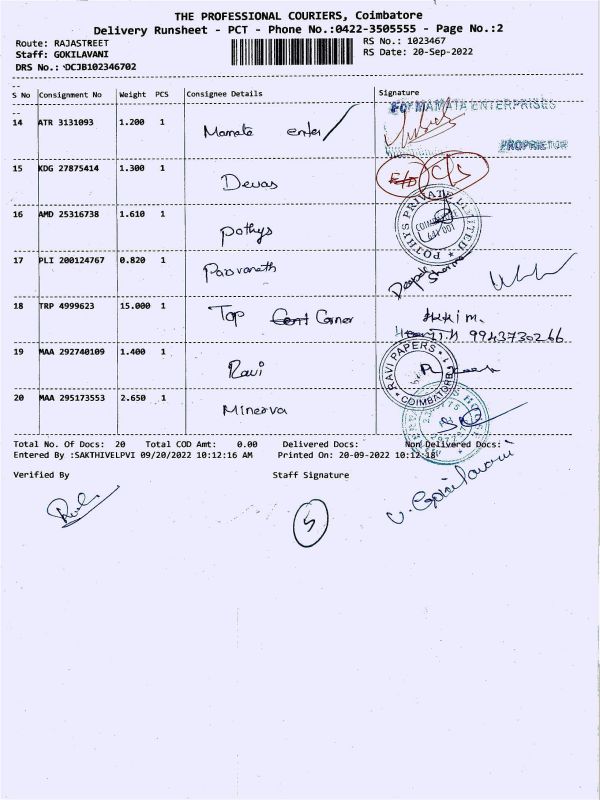 THE PROFESSIONAL COURIERS, Coimbatore
Delivery Runsheet - PCT - Phone No.:0422-3505555 - Page No.:2
Route: RAJASTREET
RS No.: 1023467
Staff: GOKILAVANI
RS Date: 20-Sep-2022
DRS No.: DCJB102346702
S No Consignment No Weight PCS Consignee Details Signature
FOR MAMATA ENTERPRISES
14 ATR 3131093 1.200 1 Mamata enter
PROPRIETOR
15 KDG 27875414 1.300 1 Devas C/S
16 AMD 25316738 1.610 1 Pothys
POTHYS PRIVATE LIMITED
COIMBATORE
641 001
17 PLI 200124767 0.820 1
Deepak Sharma
18 TRP 4999623 15.000 1 Top Cent Corner
9943730266
19 MAA 292740109 1.400 1 Ravi
RAVI PAPERS
COIMBATORE
20 MAA 295173553 2.650 1 Minerva
Total No. Of Docs: 20 Total COD Amt: 0.00 Delivered Docs: Non Delivered Docs:
Entered By :SAKTHIVELPVI 09/20/2022 10:12:16 AM Printed On: 20-09-2022 10:12:18
Verified By Staff Signature
V. Gokilavani
5